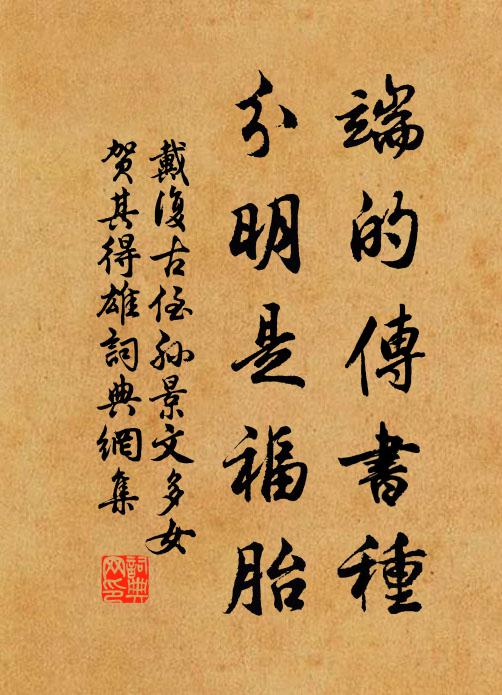 端的傳書種
分明是福胎
戴復古侄孫景文多女
賀其得雄詞典網集
詞典
网印